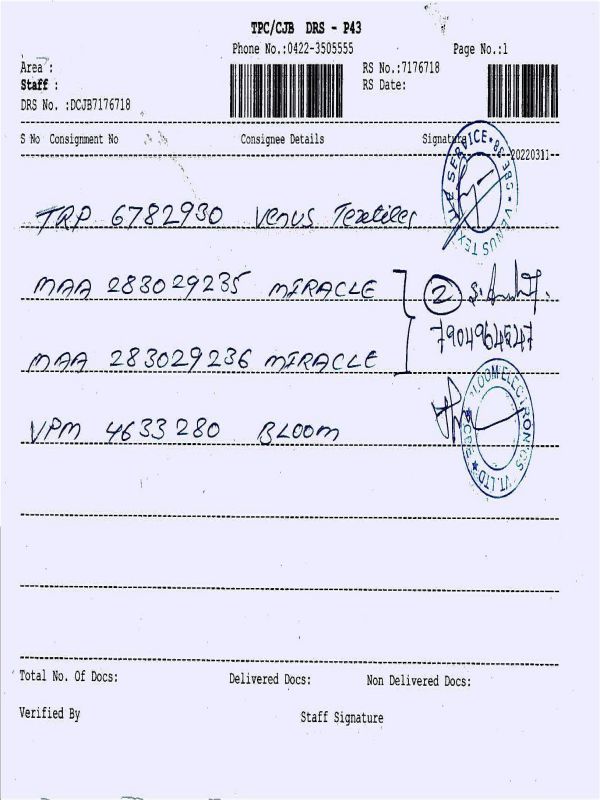 TPC/CJB DRS - P43
Phone No.:0422-3505555 Page No.:1
Area :
RS No.:7176718
Staff :
RS Date:
DRS No. :DCJB7176718
S No Consignment No Consignee Details Signature
20220311
TRP 6782930 Venus Textiles
MAA 283029235 MIRACLE
2
7904964547
MAA 283029236 MIRACLE
VPM 4633280 BLOOM
Total No. Of Docs: Delivered Docs: Non Delivered Docs:
Verified By Staff Signature